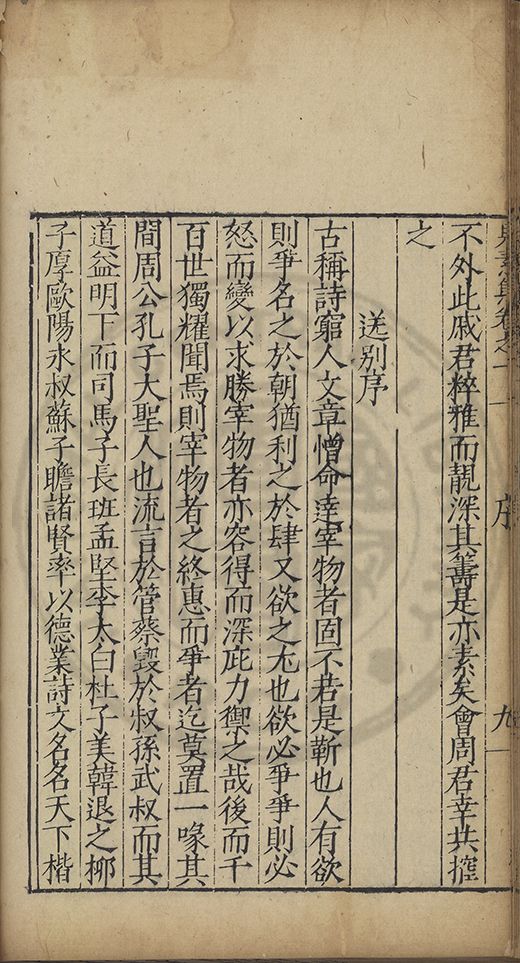 集卷之十一 序 九
不外此戚君粹雅而靚深其籌是亦素矣會周君幸共搉
之
送別序
古稱詩窮人文章憎命達宰物者固不若是靳也人有欲
則爭名之於朝猶利之於肆又欲之尢也欲必爭爭則必
怒而變以求勝宰物者亦容得而深庇力禦之哉後而千
百世獨耀聞焉則宰物者之終惠而爭者迄莫置一喙其
間周公孔子大聖人也流言於管蔡毀於叔孫武叔而其
道益明下而司馬子長班孟堅李太白杜子美韓退之栁
子厚歐陽永叔蘇子瞻諸賢率以德業詩文名名天下楷